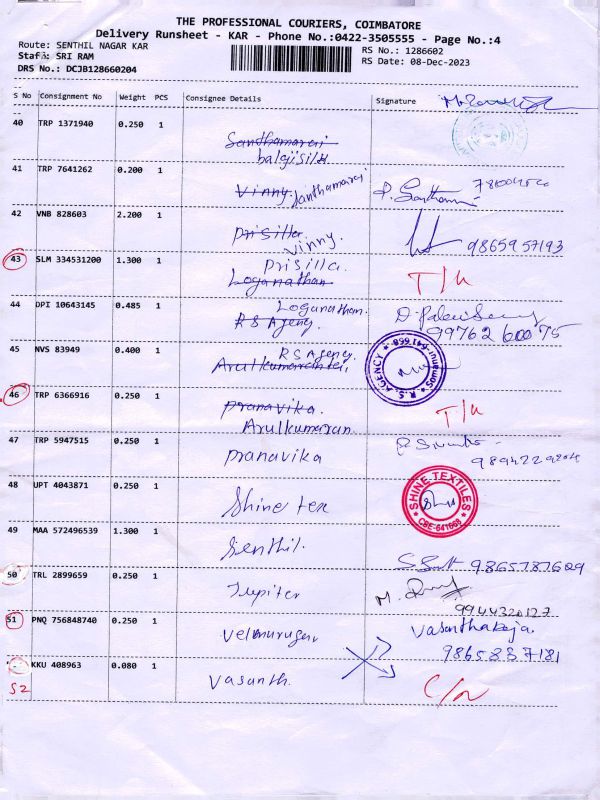 THE PROFESSIONAL COURIERS, COIMBATORE
Delivery Runsheet - KAR - Phone No.:0422-3505555 - Page No.:4
Route: SENTHIL NAGAR KAR
RS No.: 1286602
Staff: SRI RAM
RS Date: 08-Dec-2023
DRS No.: DCJB128660204
S No Consignment No Weight PCS Consignee Details Signature
40 TRP 1371940 0.250 1
Santhamarai
balajisilk
41 TRP 7641262 0.200 1 Vinny. Santhamarai
42 VNB 828603 2.200 1 Prisilla. 9865957193
Vinny.
43 SLM 334531200 1.300 1 Prisilla. T/u
Loganathan
44 DPI 10643145 0.485 1 Loganathan.
RS Agency. 9976260075
45 NVS 83949 0.400 1 RS Agency.
Arulkumaran
R.S. AGENCY
46 TRP 6366916 0.250 1 Pranavika. T/u
Arulkumaran
47 TRP 5947515 0.250 1 Pranavika
48 UPT 4043871 0.250 1 Shine tex
SHINE TEXTILES
CBE-641668
49 MAA 572496539 1.300 1 Senthil.
50 TRL 2899659 0.250 1 Jupiter
9944320127
51 PNQ 756848740 0.250 1 Velmurugan
9865837181
KKU 408963 0.080 1 Vasanth.
52